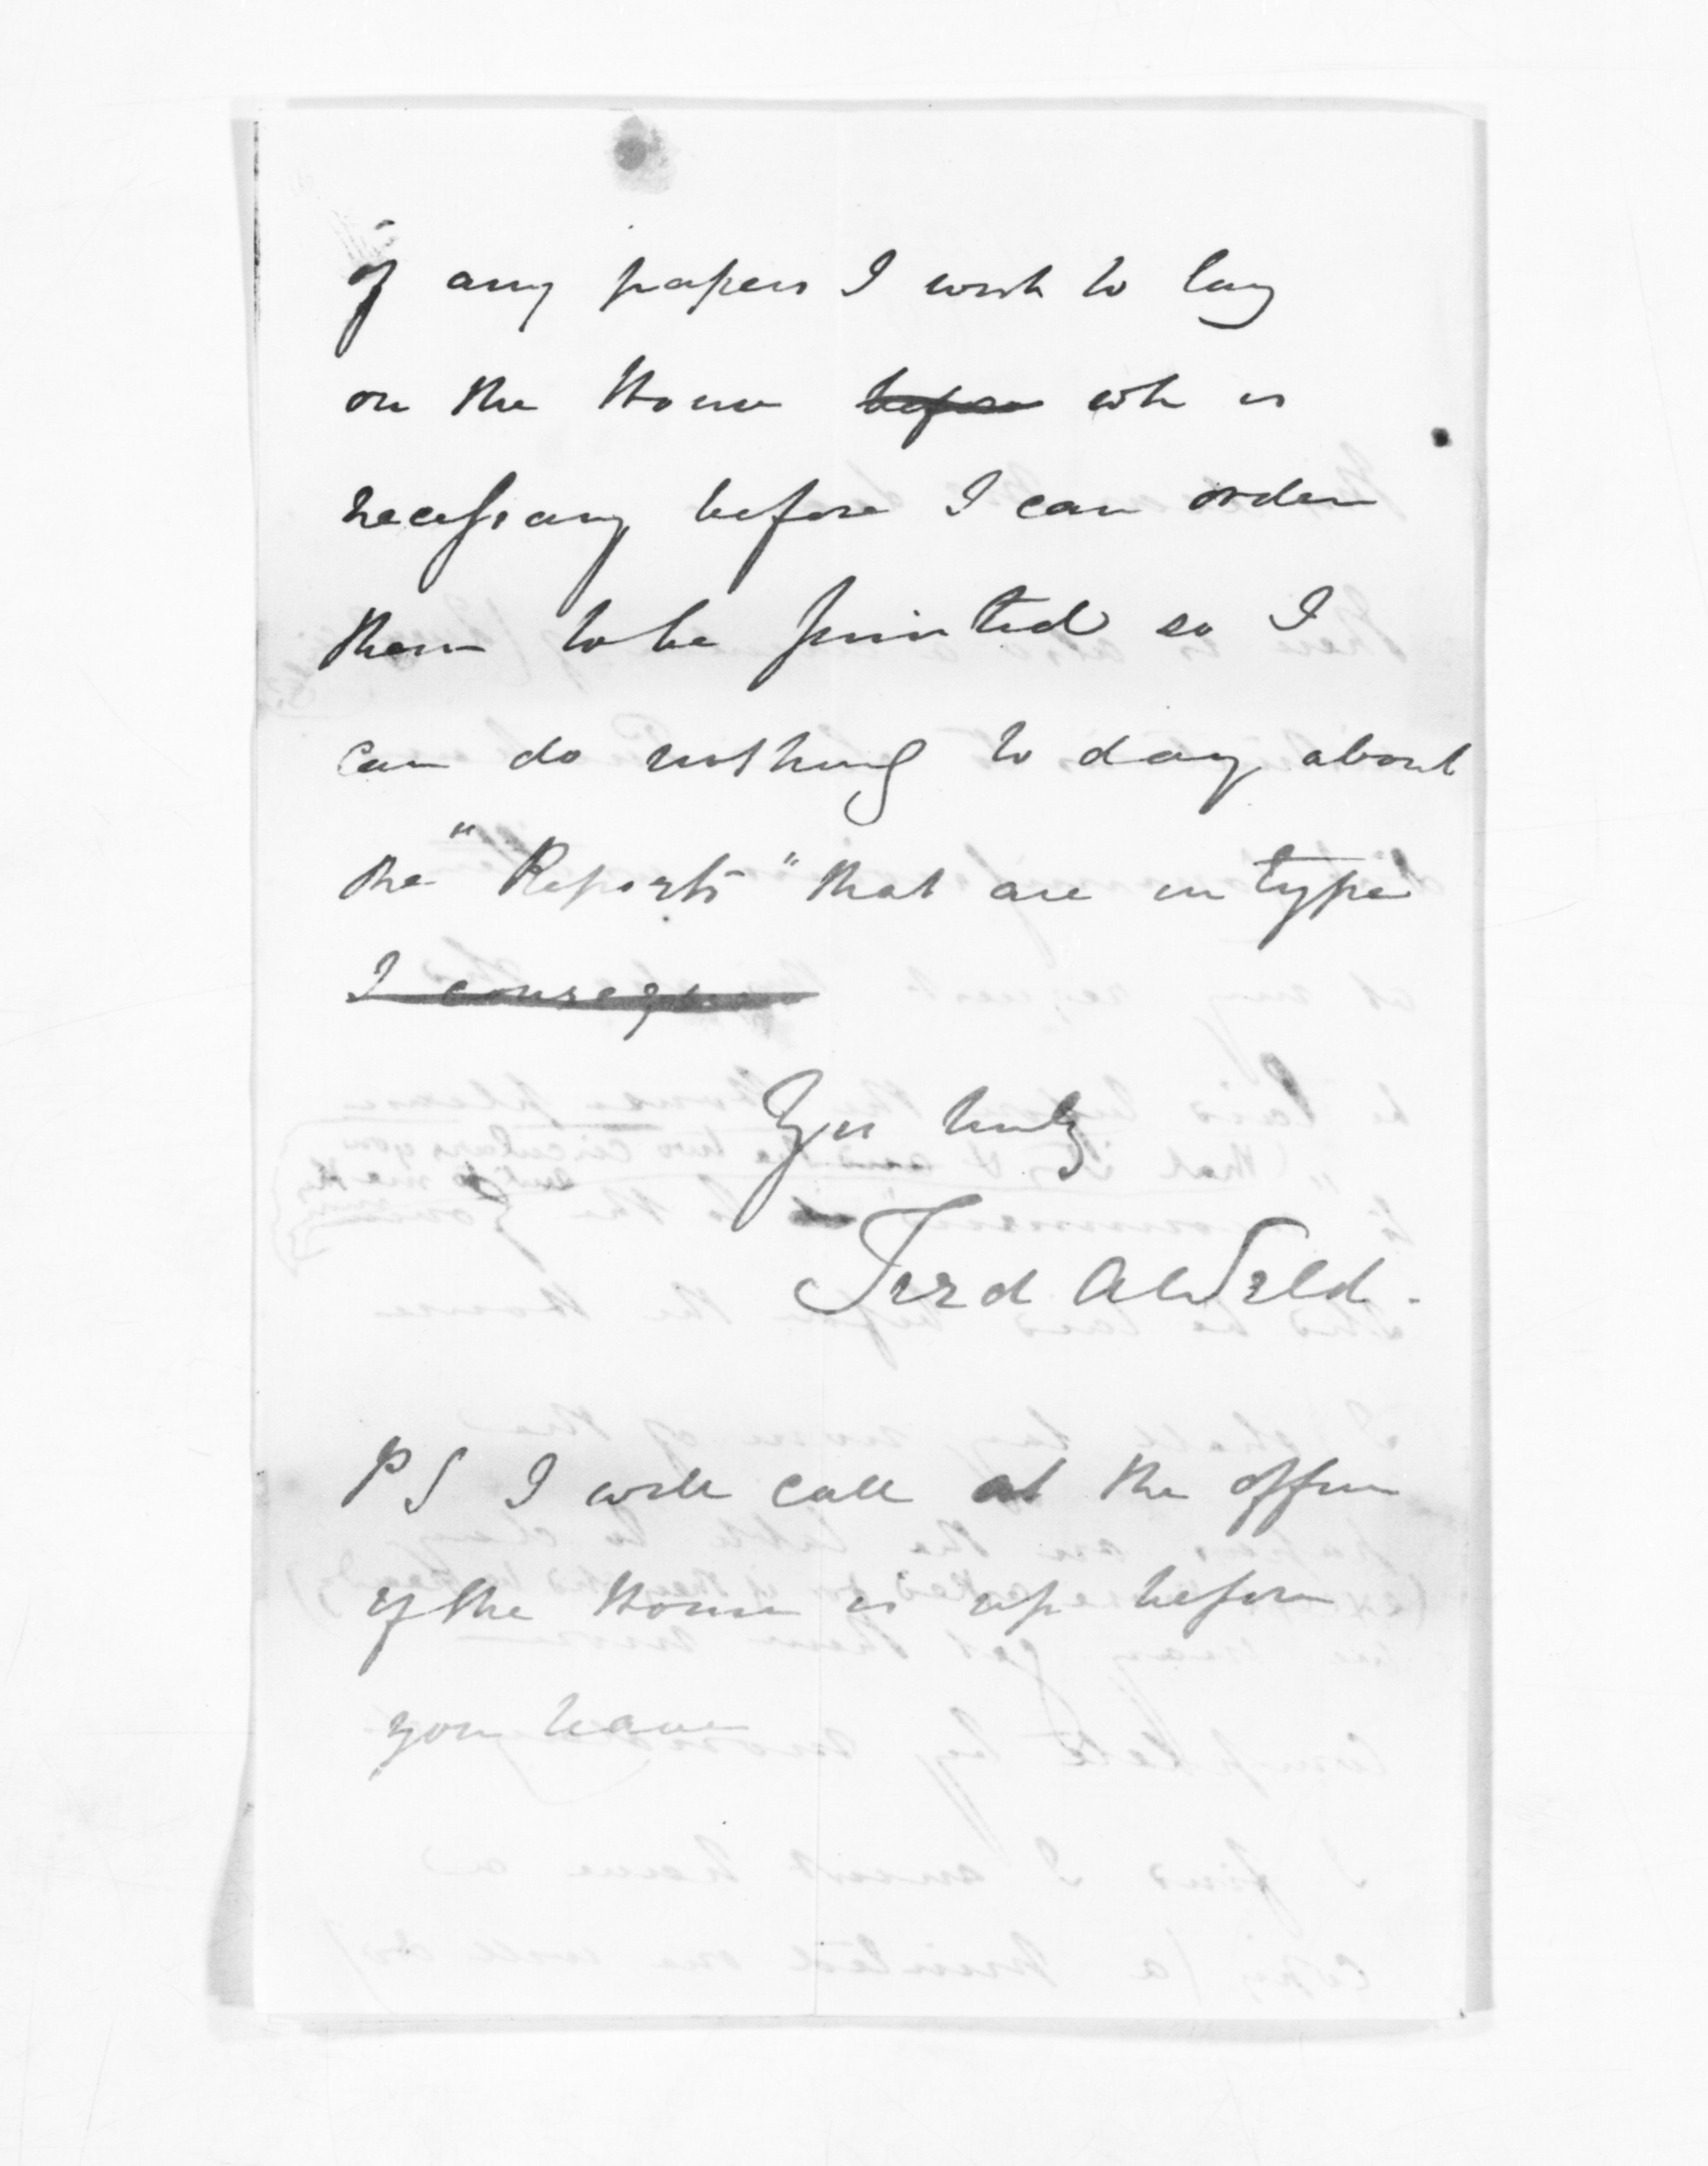 of any papers I wish to lay
on the House ~~before~~ wh is
necessary before I can order
them to be printed so I
can do nothing to day about
the "Reports" that are in type
~~I conseque~~
Yrs truly
Fredk A Weld.
PS I will call at the office
if the House is up before
you leave